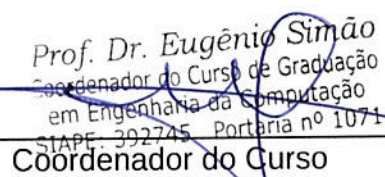 Prof. Dr. Eugênio Simão
Coordenador do Curso de Graduação
em Engenharia da Computação
SIAPE: 392745 Portaria nº 1071
Coordenador do Curso